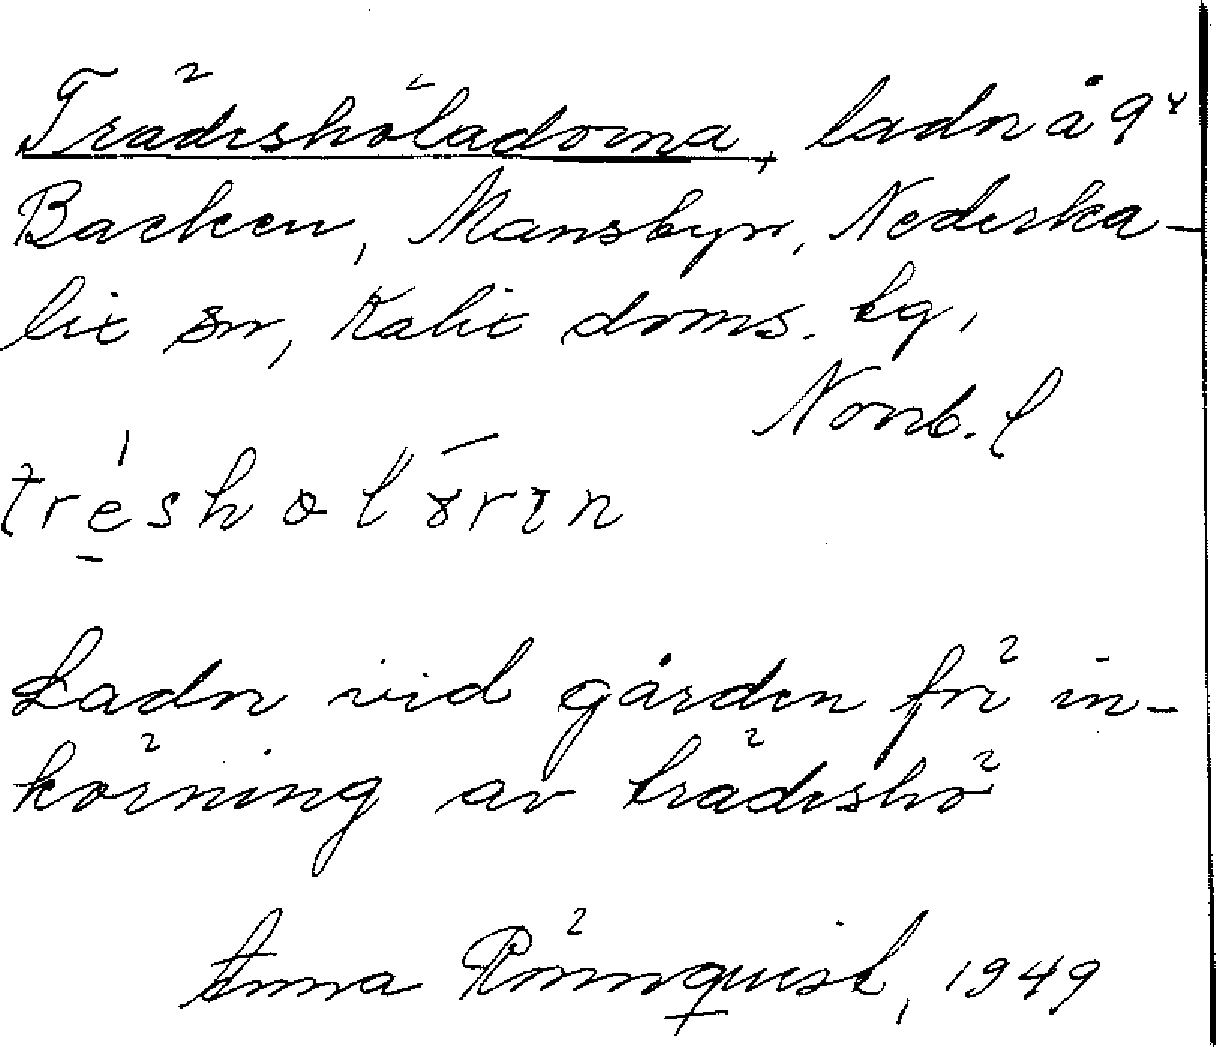 Trädeshöladorna, lador å 9⁴
Backen, Mansbyn, Nederka-
lix sn, Kalix doms. tg,
Norrb. l
Lador vid gården för in-
körning av trädeshö
Anna Rönnquist, 1949